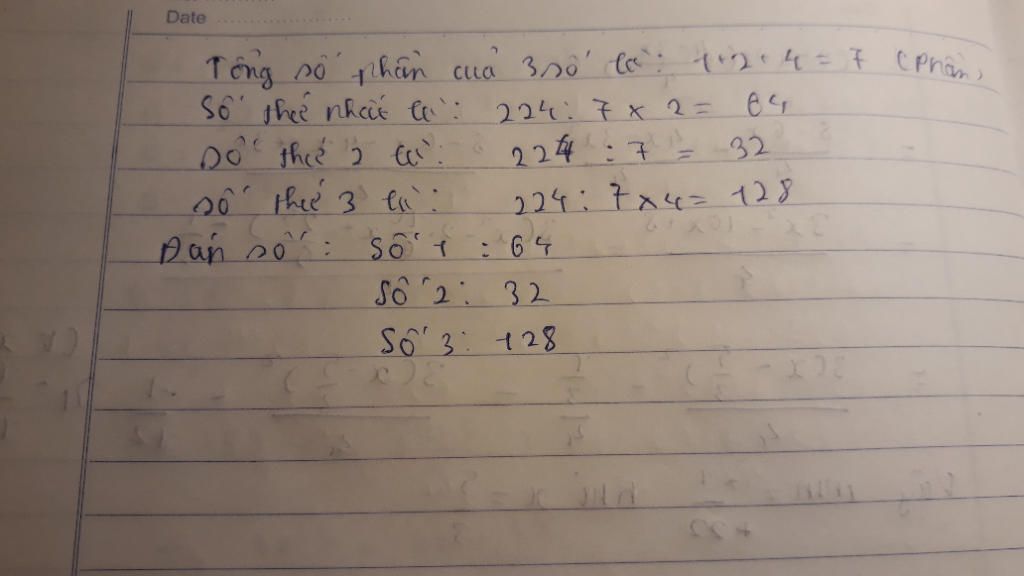 Date
Tổng số phần của 3 số là: 1+2+4 = 7 (phần)
Số thứ nhất là: 224 : 7 x 2 = 64
Số thứ 2 là: 224 : 7 = 32
Số thứ 3 là: 224 : 7 x 4 = 128
Đáp số: Số 1 : 64
Số 2 : 32
Số 3 : 128